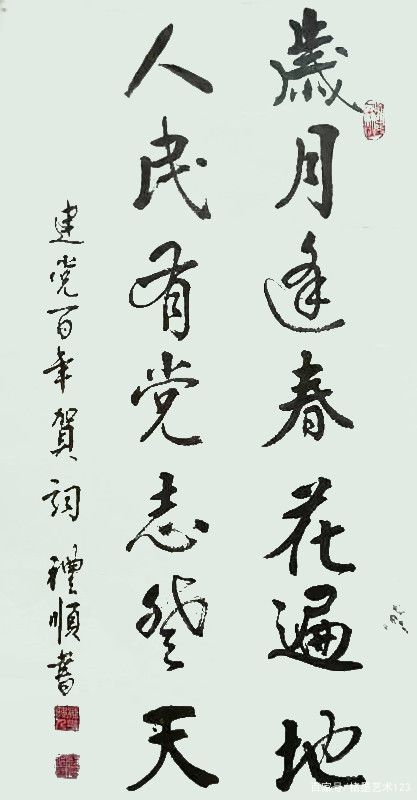 歲月逢春花遍地
人民有党志登天
建党百年賀詞 禮順書
百家号/艺术123